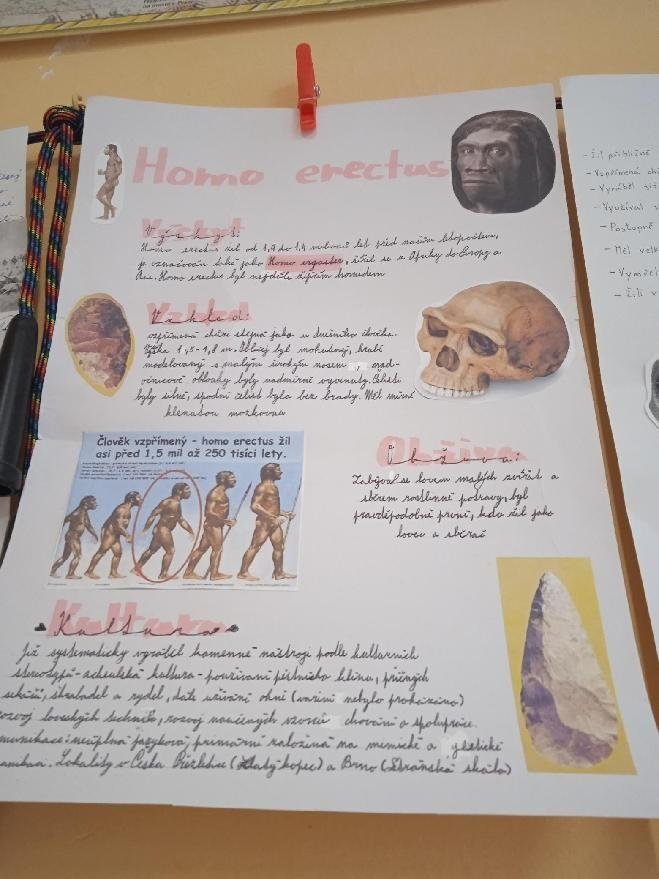 Homo erectus
Výskyt:
Homo erectus žil od 1,9 do 1,4 milionů let před naším letopočtem,
je označován také jako Homo ergaster, šířil se z Afriky do Evropy a
Asie. Homo erectus byl nejdéle žijícím homidem
Vzhled:
vzpřímená chůze stejná jako u dnešního člověka.
Výška 1,5-1,8 m. Obličej byl mohutný, hrubě
modelovaný s malým širokým nosem nad-
očnicové oblouky byly nadmírně vyvinuty. Čelisti
byly silné, spodní čelist byla bez brady. Měl mírně
klenutou mozkovnu
Člověk vzpřímený - homo erectus žil
asi před 1,5 mil až 250 tisíci lety.
Obživa:
Zabýval se lovem malých zvířat a
sběrem rostlinné potravy, byl
pravděpodobně první, kdo žil jako
lovec a sběrač
Kultura
Již systematicky vyráběl kamenné nástroje podle kulturních
stereotypů - acheulská kultura - používaní pěstního klínu, příčných
sekáčů, škrabadel a rydel, dále užívání ohně (vaření nebylo prokázáno)
rozvoj loveckých technik, rozvoj naučených vzorců chování a spolupráce.
munikace: neúplná jazyková, primární založená na mimické a gestické
Lokality v Česku Přezletice (Zlatý kopec) a Brno (Stránská skála)
- Žil přibližně
- Vzpřímená
- Vyráběl
- Využíval
- Postupně
- Měl velk
- Vymřel
- Žili v